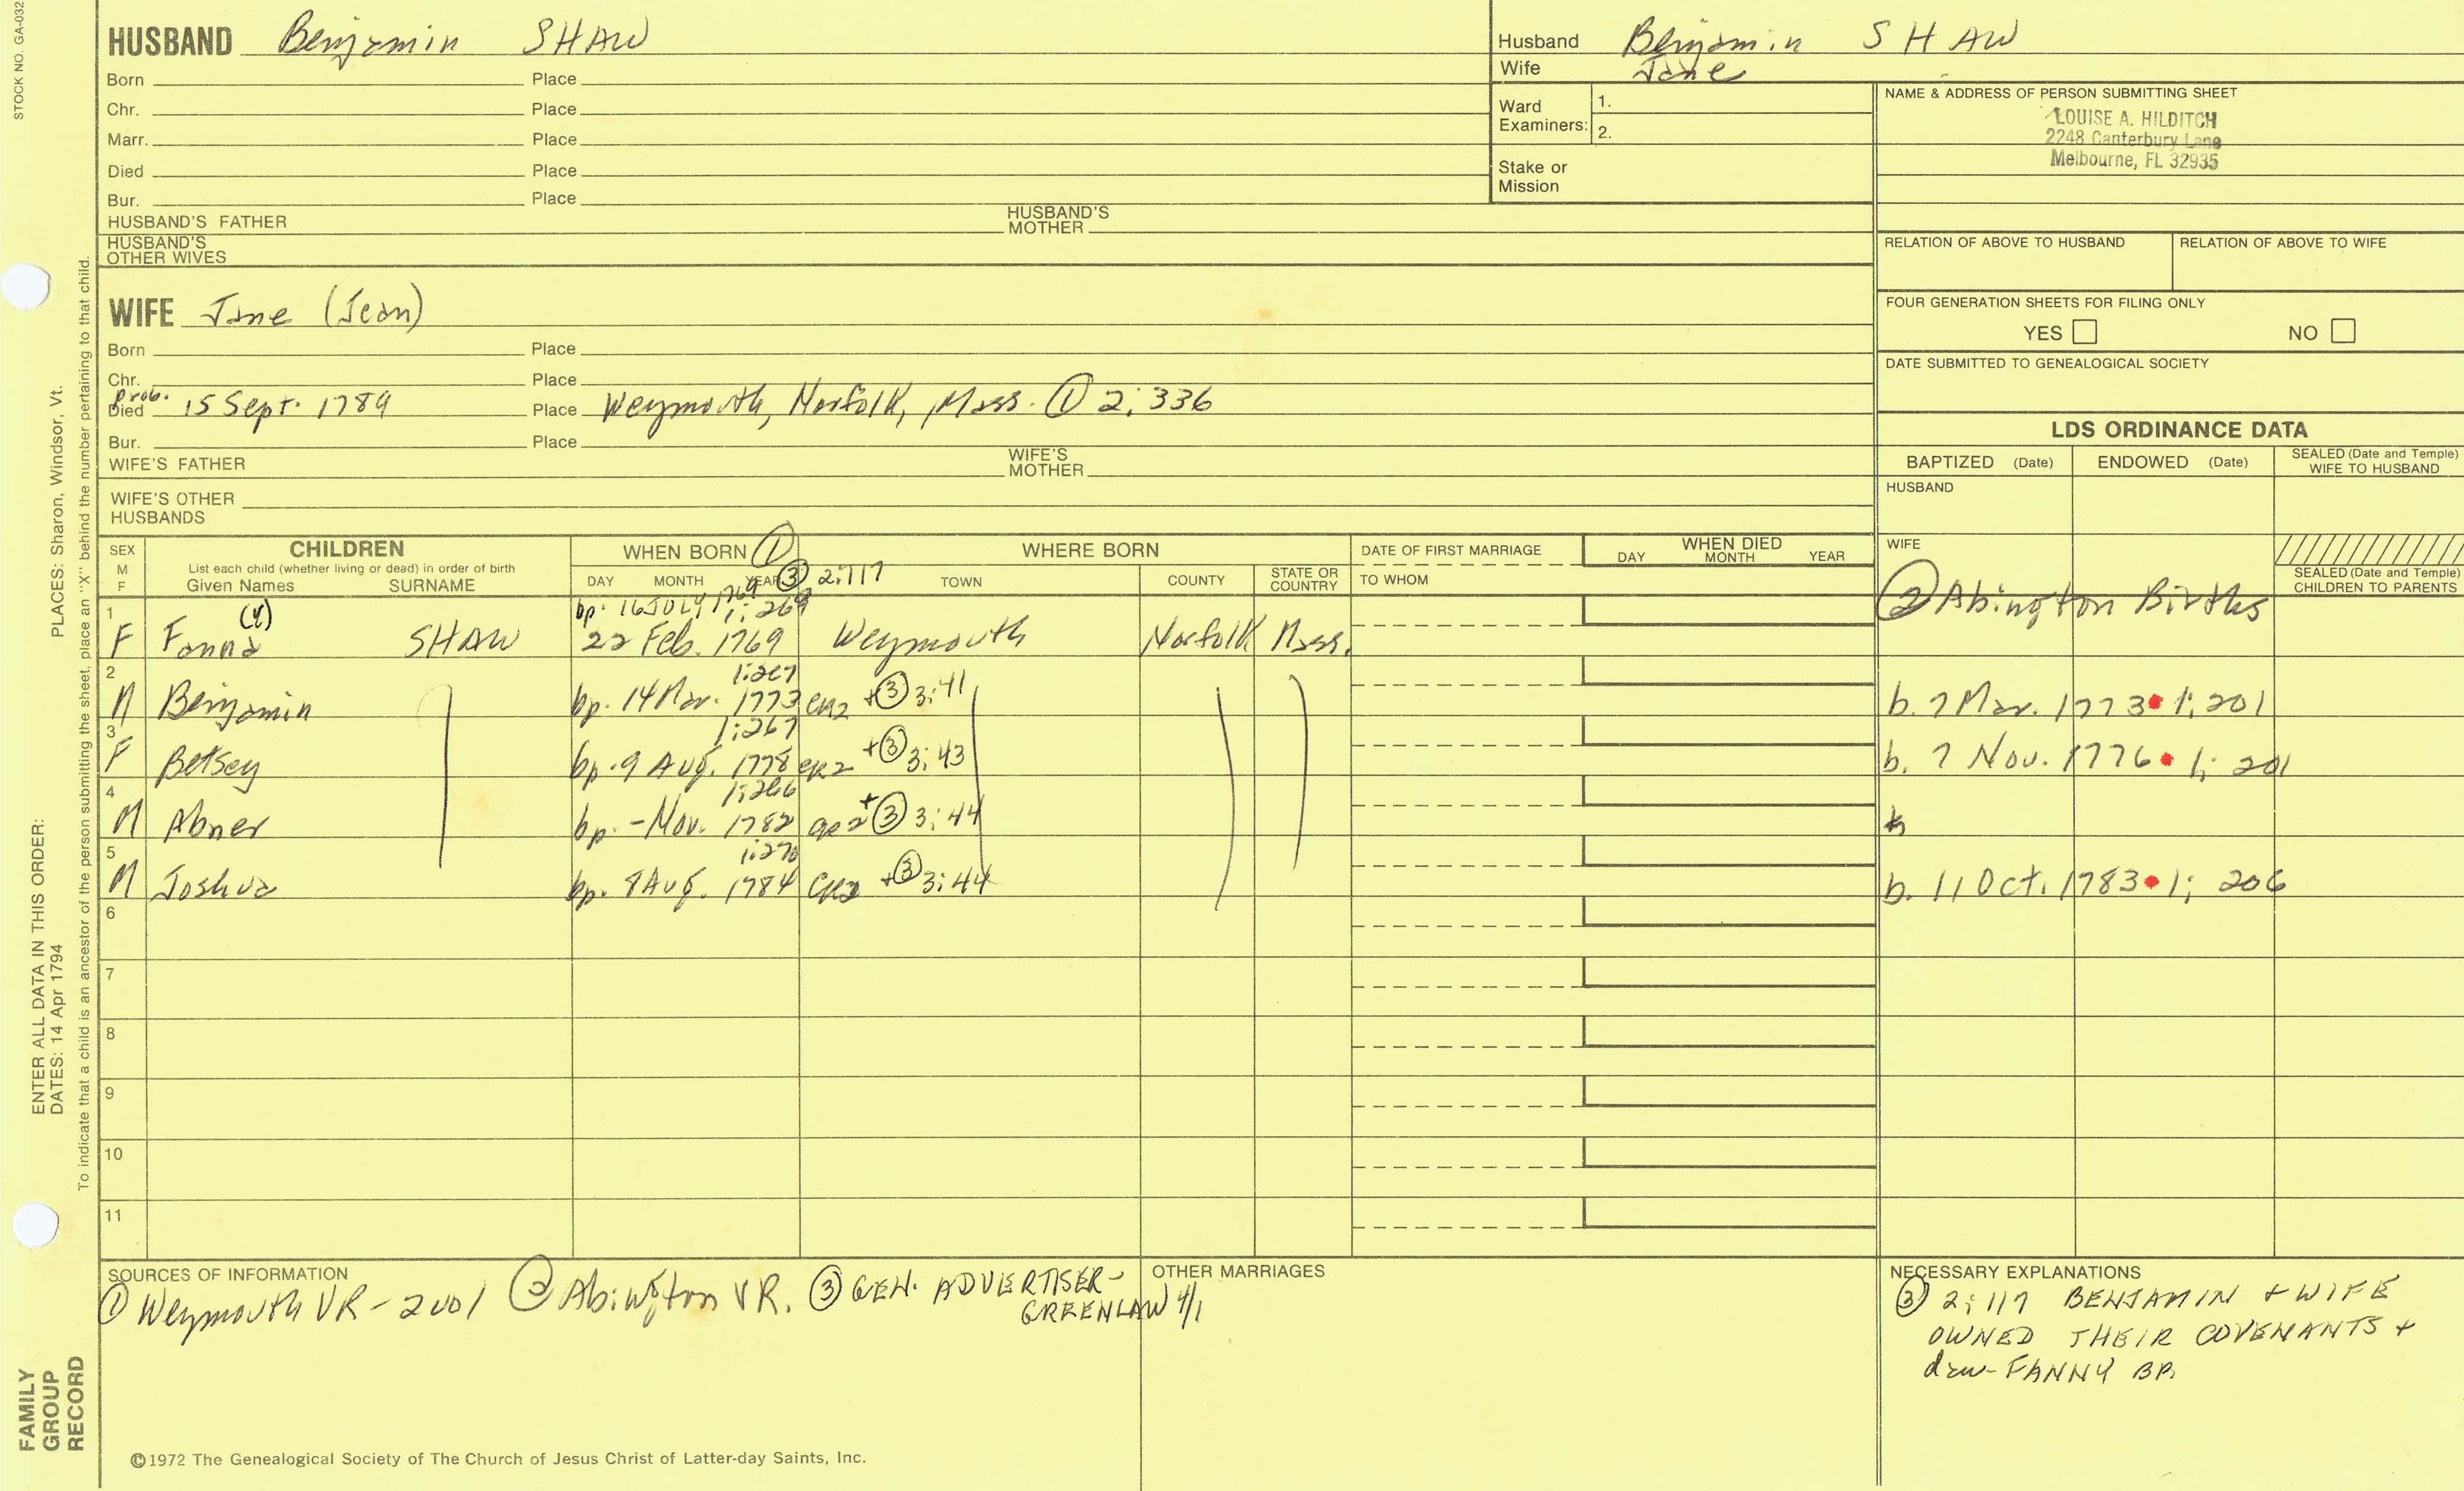 STOCK NO. GA-032
PLACES: Sharon, Windsor, Vt.
ENTER ALL DATA IN THIS ORDER:
DATES: 14 Apr 1794
To indicate that a child is an ancestor of the person submitting the sheet, place an "X" behind the number pertaining to that child.
FAMILY
GROUP
RECORD
HUSBAND Benjamin SHAW
Born Place
Chr. Place
Marr. Place
Died Place
Bur. Place
HUSBAND'S FATHER HUSBAND'S MOTHER
HUSBAND'S OTHER WIVES
Husband Benjamin SHAW
Wife Jane
Ward Examiners: 1.
2.
Stake or Mission
NAME & ADDRESS OF PERSON SUBMITTING SHEET
LOUISE A. HILDITCH
2248 Canterbury Lane
Melbourne, FL 32935
RELATION OF ABOVE TO HUSBAND RELATION OF ABOVE TO WIFE
FOUR GENERATION SHEETS FOR FILING ONLY
YES NO
DATE SUBMITTED TO GENEALOGICAL SOCIETY
WIFE Jane (Jean)
Born Place
Chr. Place
Prob.
Died 15 Sept. 1789 Place Weymouth, Norfolk, Mass. ① 2:336
Bur. Place
WIFE'S FATHER WIFE'S MOTHER
WIFE'S OTHER HUSBANDS
LDS ORDINANCE DATA
BAPTIZED (Date) ENDOWED (Date) SEALED (Date and Temple) WIFE TO HUSBAND
HUSBAND
WIFE
SEALED (Date and Temple) CHILDREN TO PARENTS
SEX M F CHILDREN
List each child (whether living or dead) in order of birth
Given Names SURNAME
WHEN BORN ① WHERE BORN
DAY MONTH YEAR ③ 2:117 TOWN COUNTY STATE OR COUNTRY
DATE OF FIRST MARRIAGE
TO WHOM
WHEN DIED
DAY MONTH YEAR
② Abington Births
1 (y) bp. 16 JULY 1769 1:269
F Fanna SHAW 22 Feb. 1769 Weymouth Norfolk Mass.
2 1:267
M Benjamin bp. 14 Mar. 1773 CR2 +③ 3:41 b. 7 Mar. 1773 1:201
3 1:267
F Betsey bp. 9 Aug. 1778 CR2 +③ 3:43 b. 7 Nov. 1776 1:201
4 1:266
M Abner bp. - Nov. 1782 CR2 +③ 3:44
5 1:270
M Joshua bp. 8 Aug. 1784 CR2 +③ 3:44 b. 11 Oct. 1783 1:206
6
7
8
9
10
11
SOURCES OF INFORMATION
① Weymouth VR - 2 vol ② Abington VR. ③ GEN. ADVERTISER -
GREENLAW 4/1
OTHER MARRIAGES
NECESSARY EXPLANATIONS
③ 2:117 BENJAMIN + WIFE
OWNED THEIR COVENANTS +
dau - FANNY BP.
©1972 The Genealogical Society of The Church of Jesus Christ of Latter-day Saints, Inc.